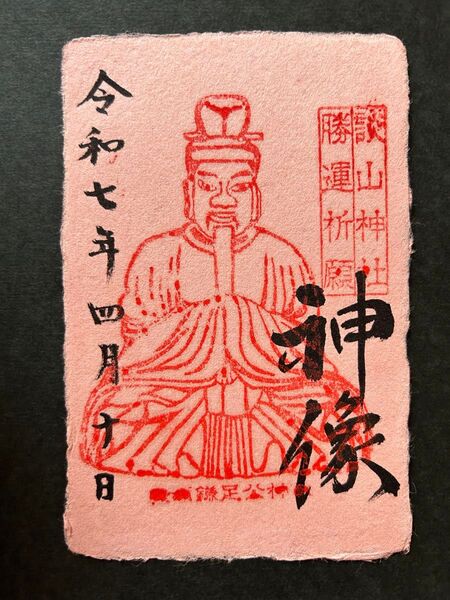 談山神社
勝運祈願
神像
令和七年四月十日
鎌足公神